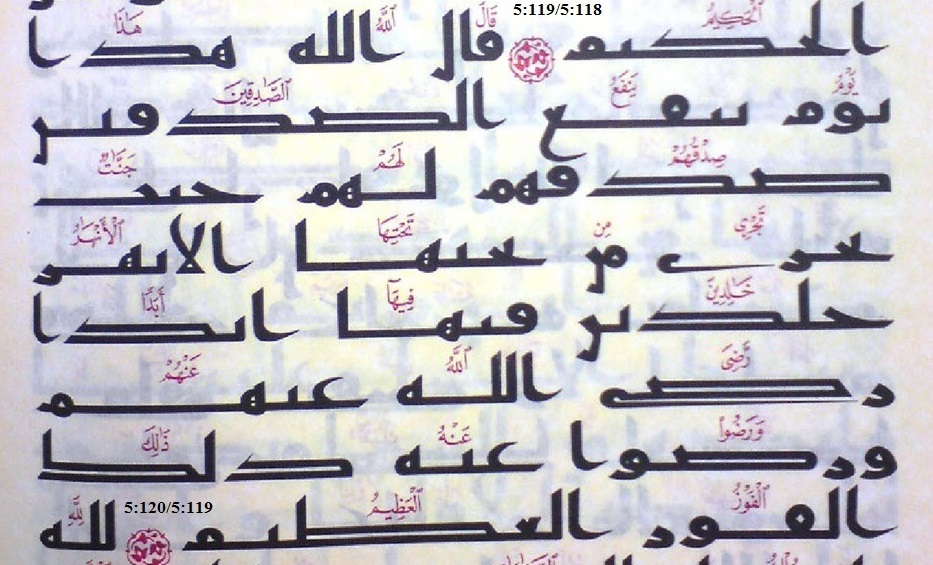 5:119/5:118
ٱلْحَكِيمُ قَالَ ٱللَّهُ هَٰذَا
الحكيم قال الله هذا
يَوْمُ يَنفَعُ ٱلصَّٰدِقِينَ
يوم ينفع الصدقين
صِدْقُهُمْ لَهُمْ جَنَّٰتٌ
صدقهم لهم جنت
تَجْرِى مِن تَحْتِهَا ٱلْأَنْهَٰرُ
تجرى من تحتها الانهر
خَٰلِدِينَ فِيهَآ أَبَدًا
خلدين فيها ابدا
رَّضِىَ ٱللَّهُ عَنْهُمْ
رضى الله عنهم
وَرَضُوا۟ عَنْهُ ذَٰلِكَ
ورضوا عنه ذلك
ٱلْفَوْزُ ٱلْعَظِيمُ 5:120/5:119 لِلَّهِ
الفوز العظيم لله